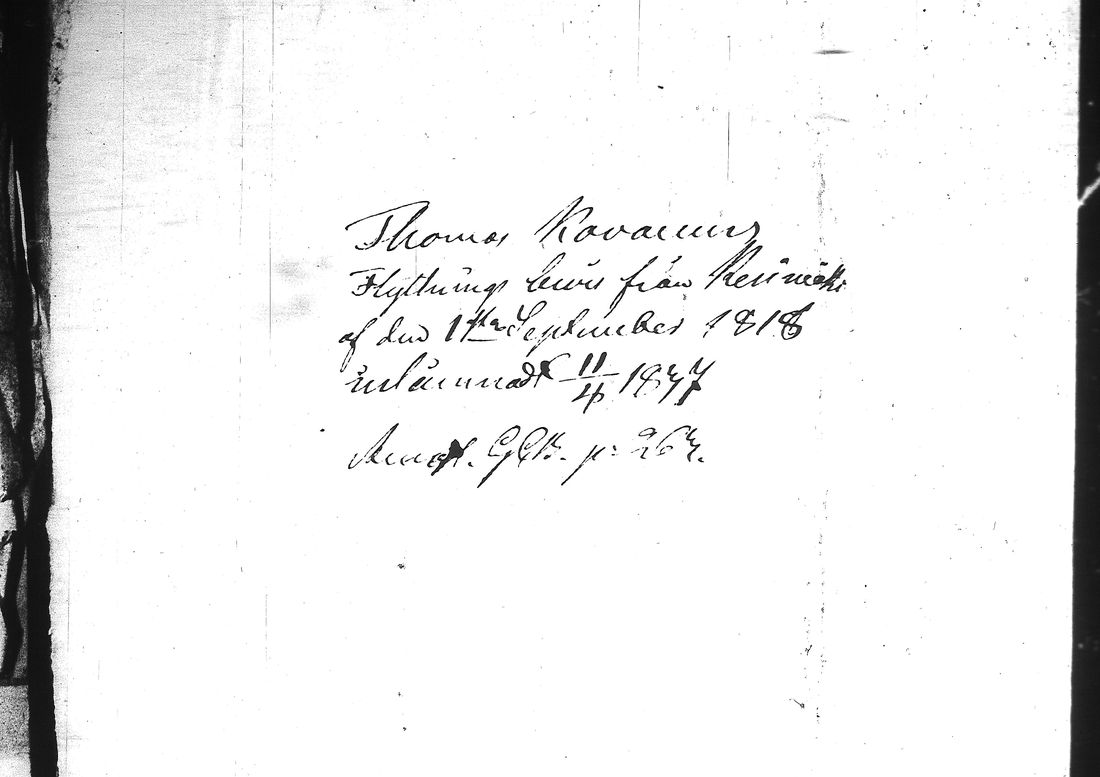 Thomas Kovanens
Flyttnings bevis från Kerimäki
af den 1sta September 1818
inlämnadt 11/4 1837
Annot. C.G.B. p: 263.